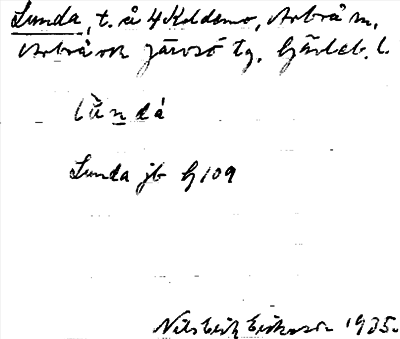 Lunda, t. å 4 Koldemo, Arbrå sn,
Arbrå och Järvsö tg, Gävleb. l.
lùndá
Lunda jb G 109
Nils Erik Eriksson 1935.